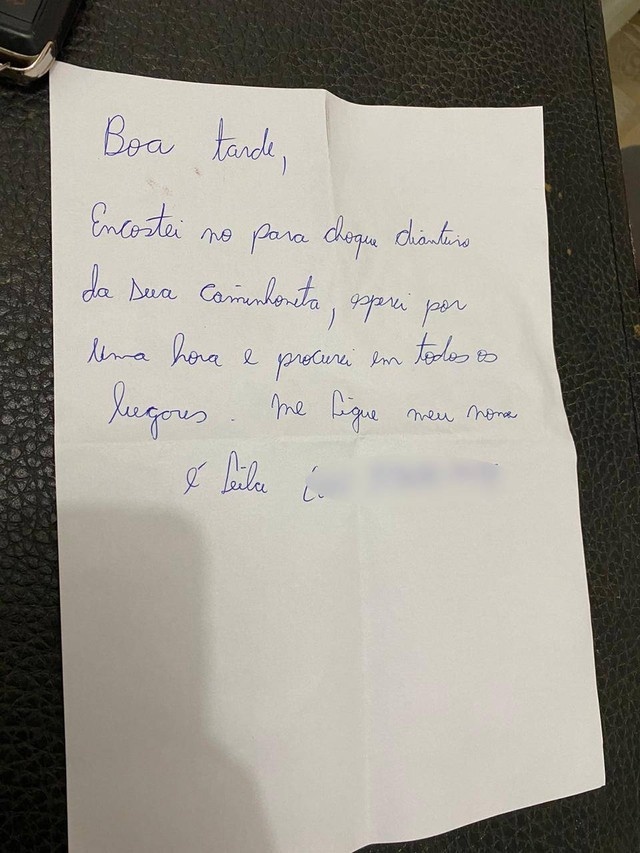 Boa tarde,
Encostei no para choque dianteiro
da sua caminhoneta, esperei por
uma hora e procurei em todos os
lugares. me ligue meu nome
é Leila